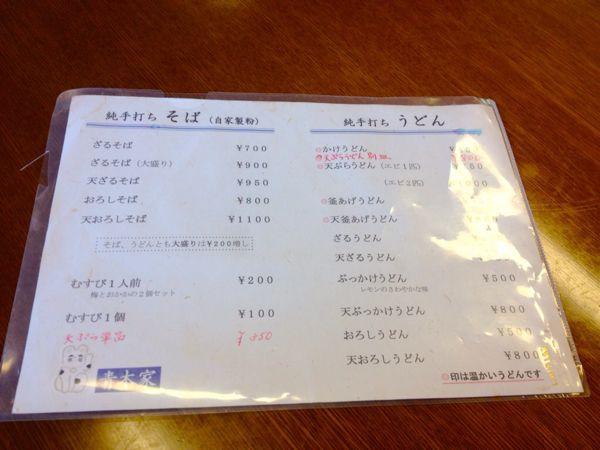 純手打ち そば（自家製粉）
ざるそば ¥700
ざるそば（大盛り） ¥900
天ざるそば ¥950
おろしそば ¥800
天おろしそば ¥1100
そば、うどんとも大盛りは¥200増し
むすび１人前 ¥200
梅とおかかの２個セット
むすび１個 ¥100
天ぷら単品 ¥350
青木家
純手打ち うどん
◎かけうどん
◎天ぷらうどん 別皿
◎天ぷらうどん（エビ１匹）
（エビ２匹）
◎釜あげうどん
◎天釜あげうどん
ざるうどん
天ざるうどん
ぶっかけうどん ¥500
レモンのさわやかな味
天ぶっかけうどん ¥800
おろしうどん ¥500
天おろしうどん ¥800
◎印は温かいうどんです